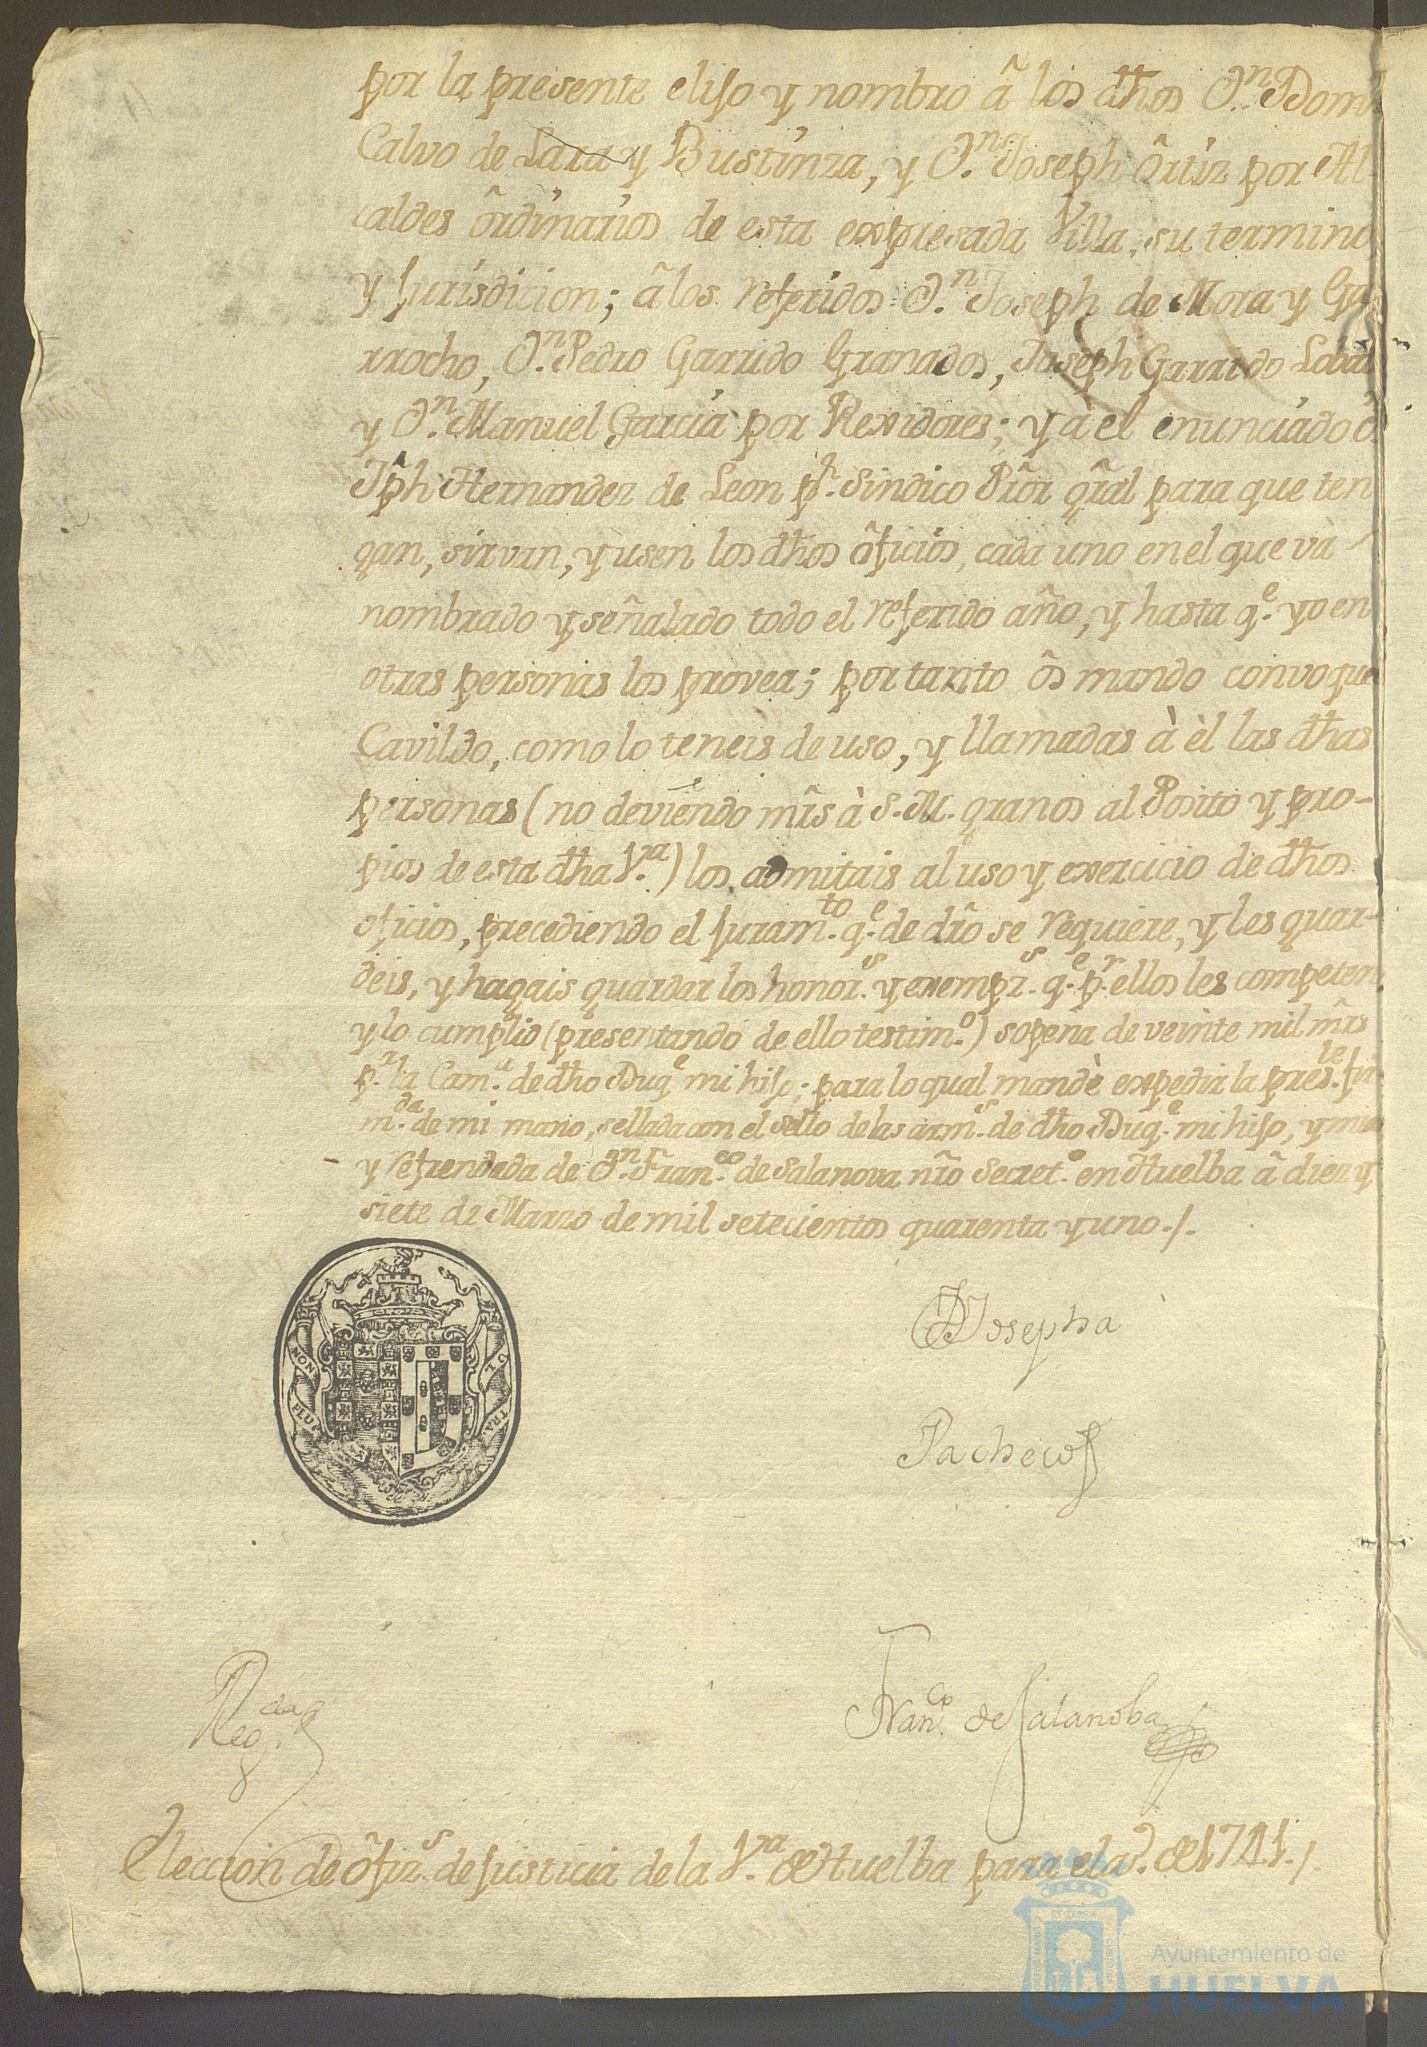 por la presente eliso y nombro â los dhos Dn. Dom
Calvo de Lara y Bustinza, y Dn. Joseph Ôrtiz por Al
caldes ôrdinarios de esta expresada Villa, su termino
y Jurisdicion; â los referidos Dn. Joseph de Mora y Ga
rrocho, Dn. Pedro Garrido Granados, Joseph Garrido Lobat
y Dn. Manuel Garcia por Rexidores; y à el enunciado
Jph Hernandez de Leon pr. Sindico Pror gral para que ten
gan, sirvan, y usen los dhos ôficios, cada uno en el que va
nombrado y señalado todo el referido año, y hasta qe. yo en
otras personas los provea; por tanto ôs mando convoque
Cavildo, como lo teneis de uso, y llamadas à èl las dhas
personas (no deviendo mrs à S. M. granos al Posito y pro-
pios de esta dha Va.) los admitais al uso y exercicio de dhos
oficios, precediendo el Juramto. qe. de dro se requiere, y les guar-
deis, y hagais guardar los honors. y exempzs. qe. pr. ellos les competen
y lo cumplid (presentando de ello testimo.) so pena de veinte mil mrs
pa. la Cama. de dho Duqe. mi hijo; para lo qual mandè expedir la preste. fir
mda. de mi mano, sellada con el sello de las arms. de dho Duqe. mi hijo, y mias
y refrendada de Dn. Franco. de Salanova nro Secreto. en Huelba â diez y
siete de Marzo de mil setecientos quarenta y uno./.
NON PLUS ULTRA
Josepha
Pacheco
Regda.
Franco. de Salanoba
Eleccion de ôfizs. de Justicia de la Va. de Huelba para el aº. de 1741./.
Ayuntamiento de
HUELVA